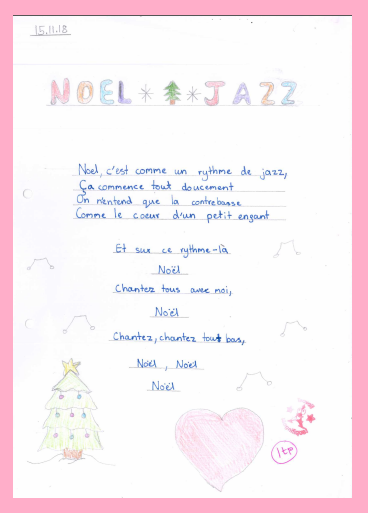 15.11.18
NOEL JAZZ
Noel, c'est comme un rythme de jazz,
Ça commence tout doucement
On n'entend que la contrebasse
Comme le coeur d'un petit engant
Et sue ce rythme-là
Noël
Chantez tous avec moi,
Noël
Chantez, chantez tout bas,
Noël, Noël
Noël
1tp